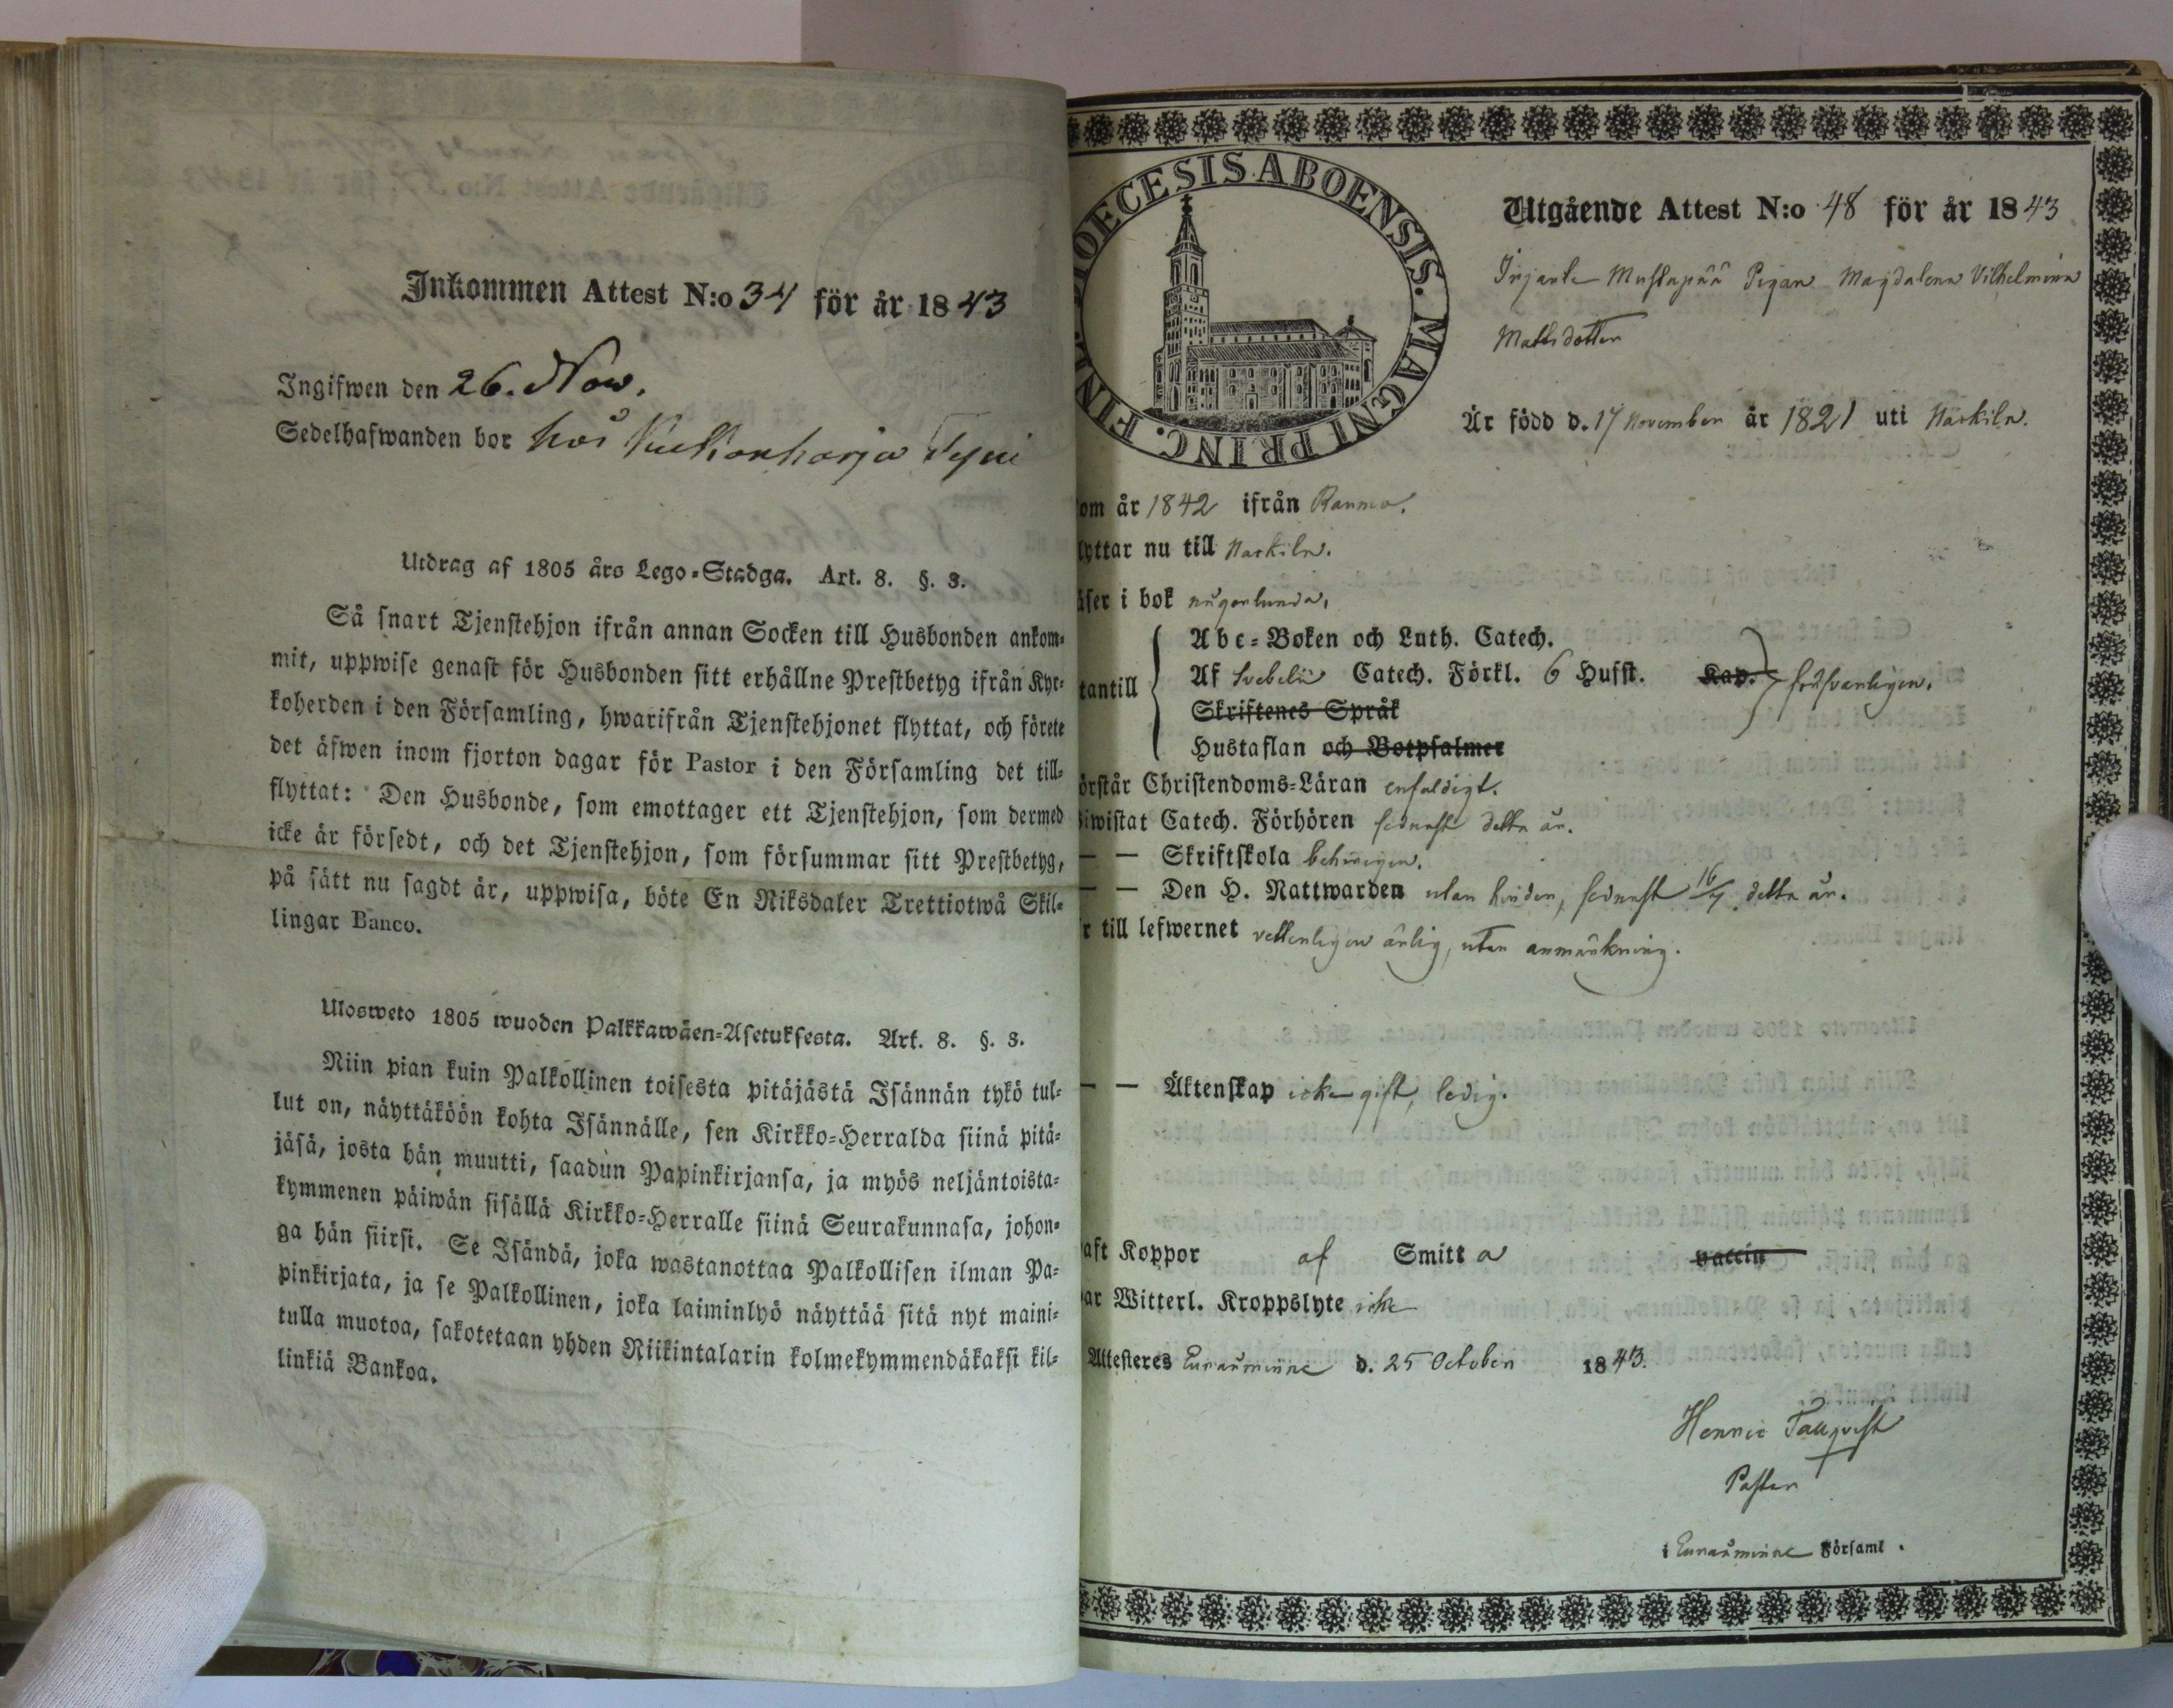 Inkommen Attest N:o 34 för år 1843
Ingifwen den 26. Nov.
Sedelhafwanden bor hos
Utdrag af 1805 års Lego-Stadga. Art. 8. §. 3.
Så snart Tjenstehjon ifrån annan Socken till Husbonden ankom-
mit, uppwise genast för Husbonden sitt erhållne Prestbetyg ifrån Kyr-
koherden i den Församling, hwarifrån Tjenstehjonet flyttat, och förete
det äfwen inom fjorton dagar för Pastor i den Församling det till-
flyttat: Den Husbonde, som emottager ett Tjenstehjon, som dermed
icke är försedt, och det Tjenstehjon, som försummar sitt Prestbetyg,
på sätt nu sagdt är, uppwisa, böte En Riksdaler Trettiotwå Skil-
lingar Banco.
Ulosweto 1805 wuoden Palkkawäen-Asetuksesta. Art. 8. §. 3.
Niin pian kuin Palkollinen toisesta pitäjästä Isännän tykö tul-
lut on, näyttäköön kohta Isännälle, sen Kirkko-Herralda siinä pitä-
jäsä, josta hän muutti, saadun Papinkirjansa, ja myös neljäntoista-
kymmenen päiwän sisällä Kirkko-Herralle siinä Seurakunnasa, johon-
ga hän siirsi. Se Isändä, joka wastanottaa Palkollisen ilman Pa-
pinkirjata, ja se Palkollinen, joka laiminlyö näyttää sitä nyt maini-
tulla muotoa, sakotetaan yhden Riikintalarin kolmekymmendäkaksi kil-
linkiä Bankoa.
DIOECESIS ABOENSIS. MAGNI PRINC. FINL.
Utgående Attest N:o 48 för år 1843
Irjanle Mustapää Pigan Magdalena Vilhelmina
Mattsdotter
Är född d. 17 November år 1821 uti Nackila.
om år 1842 ifrån Raumo.
lyttar nu till Nackila.
äser i bok någorlunda,
Abc-Boken och Luth. Catech.
tantill Af Svebelii Catech. Förkl. 6 Hufst. Kap. försvarligen.
Skriftenes Språk
Hustaflan och Botpsalmer
örstår Christendoms-Läran enfaldigt.
iwistat Catech. Förhören sednast detta år.
— — Skriftskola behörigen.
— — Den H. Nattwarden utan hinder, sednast 16/7 detta år.
r till lefwernet vetterligen ärlig, utan anmärkning.
— — Äktenskap icke gift, ledig.
aft Koppor af Smitta vaccin
ar Witterl. Kroppslyte icke
Attesteres Euraåminne d. 25 October 1843.
Henric Tallqvist
Pastor
i Euraåminne Församl.